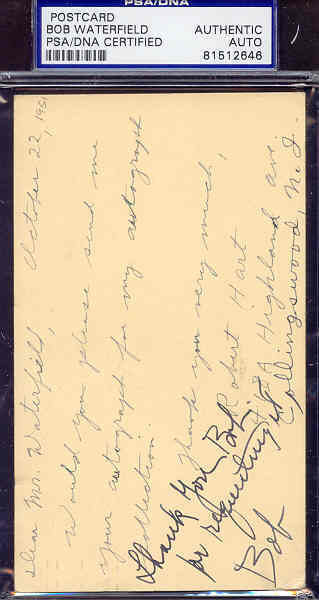 PSA/DNA
POSTCARD
BOB WATERFIELD
PSA/DNA CERTIFIED
AUTHENTIC
AUTO
81512646
October 22, 1951
Dear Mr. Waterfield,
Would you please send me
your autograph for my autograph
collection.
Thank you very much,
Robert Hart
Highland ave.
Collingswood, N.J.
Thank you Bob
for requesting it
Bob